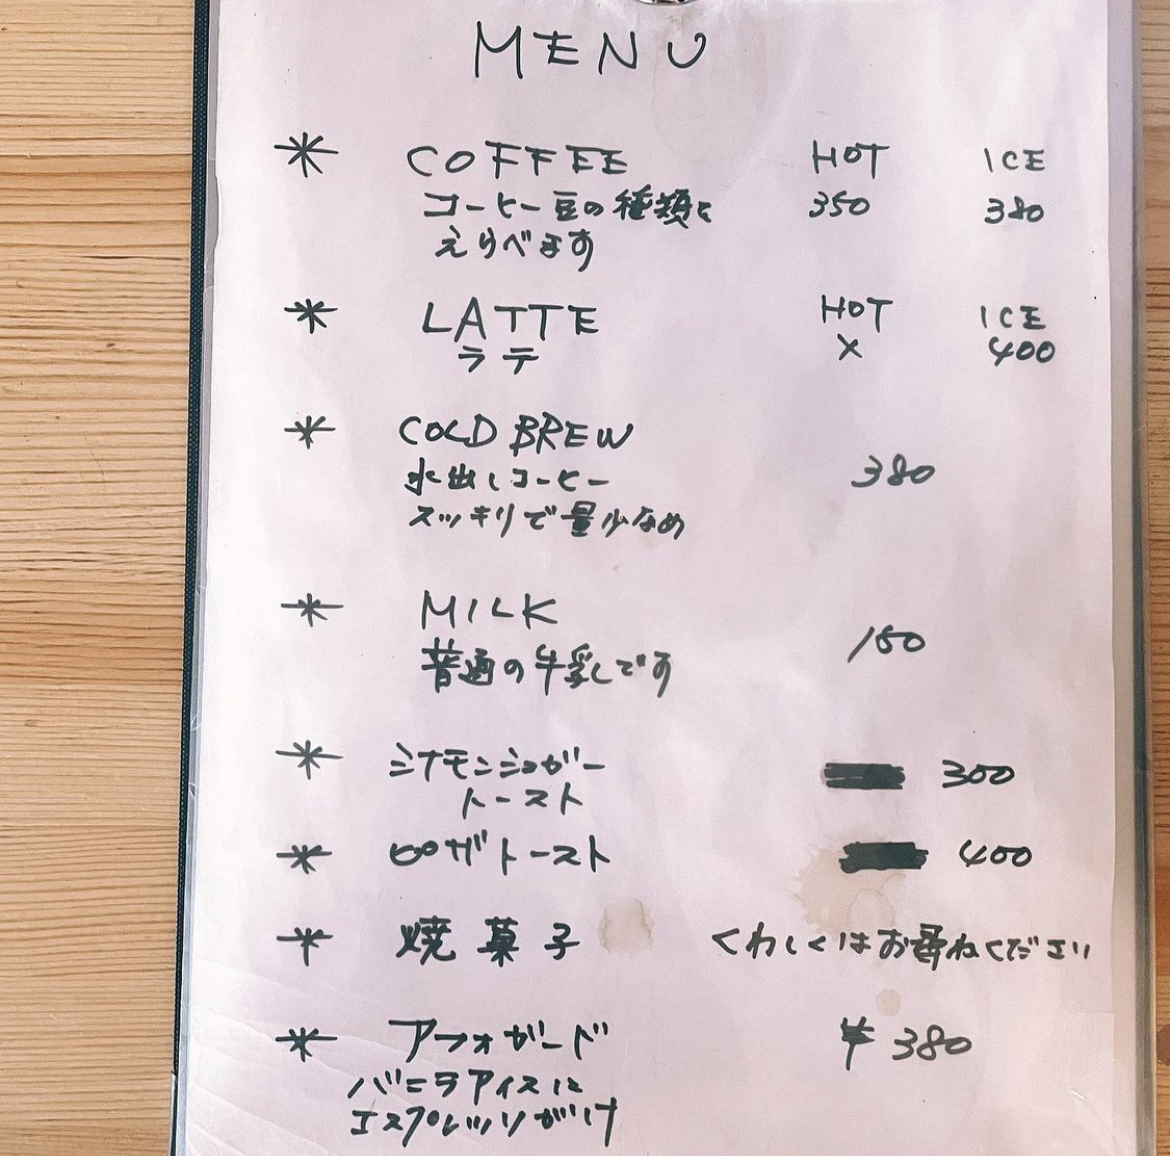 MENU
* COFFEE HOT ICE
コーヒー豆の種類と 350 380
えらべます
* LATTE HOT ICE
ラテ × 400
* COLD BREW
水出しコーヒー 380
スッキリで量少なめ
* MILK
普通の牛乳です 150
* シナモンシュガー 300
トースト
* ピザトースト 400
* 焼菓子 くわしくはお尋ねください
* アフォガード ¥380
バニラアイスに
エスプレッソがけ